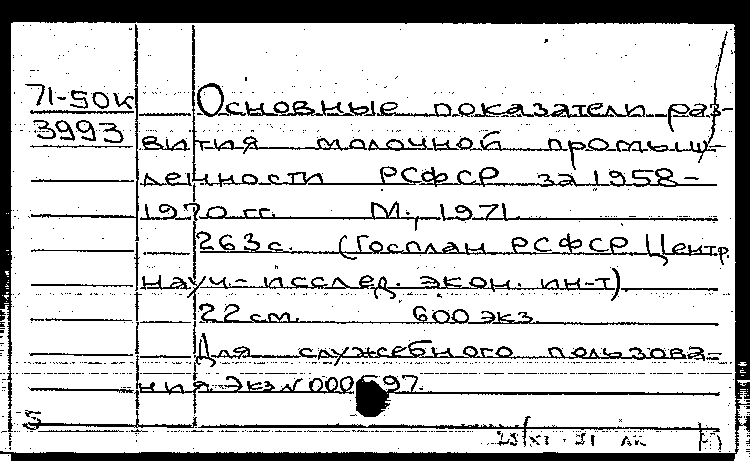 71-50к Основные показатели раз-
3993 вития молочной промыш-
ленности РСФСР за 1958-
1970 гг. М., 1971.
263с. (Госплан РСФСР. Центр.
науч.-исслед. экон. ин-т).
22 см. 600 экз.
Для служебного пользова-
ния. Экз№000597.